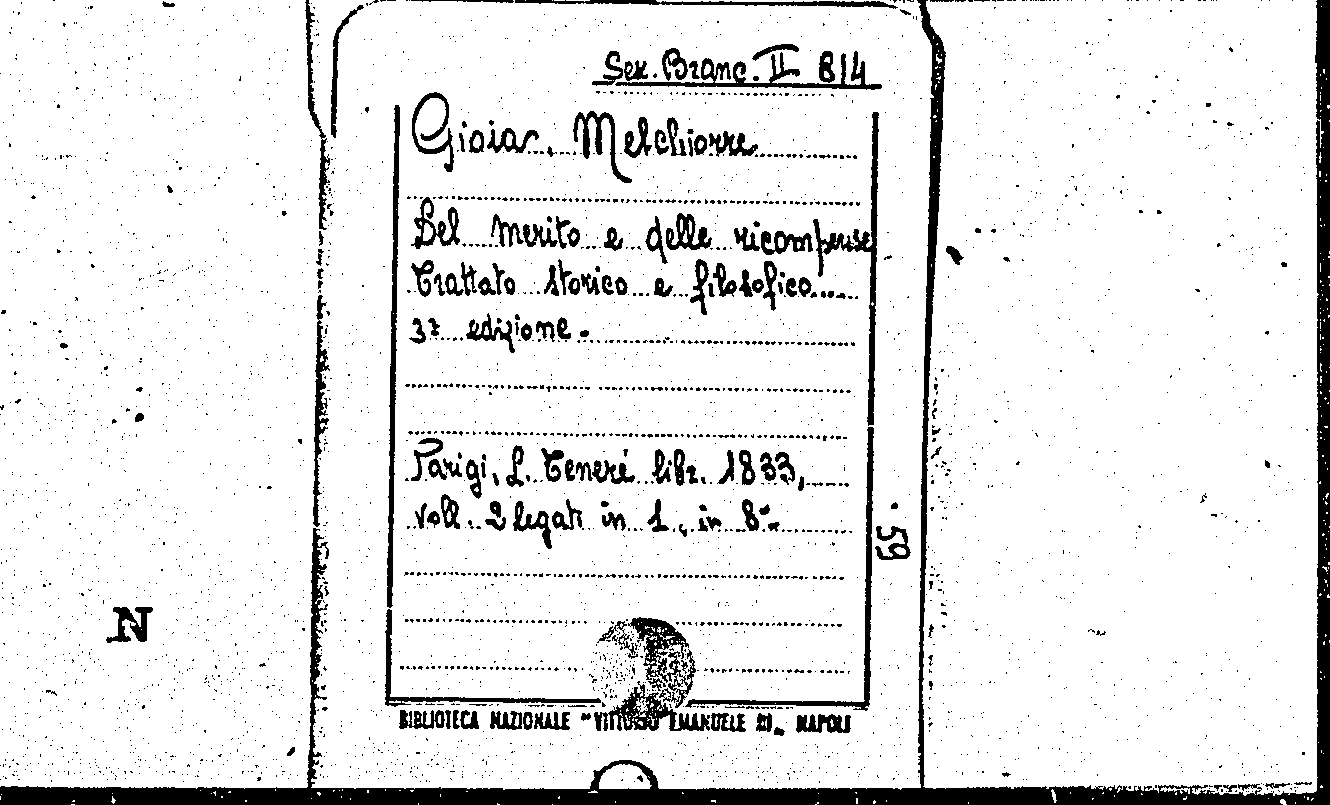 Sez. Branc. II B14
Gioia, Melchiorre
Del merito e delle ricompense
Trattato storico e filosofico...
3ª edizione.
Parigi, L. Teneré libr. 1833,
voll. 2 legati in 1, in 8°
59
N
BIBLIOTECA NAZIONALE "VITTORIO EMANUELE III" NAPOLI